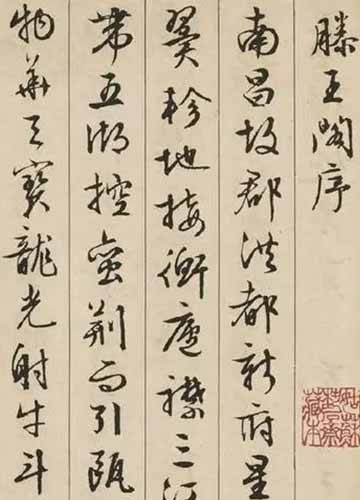 滕王閣序
南昌故郡洪都新府星
翼軫地接衡廬襟三
帶五湖控蠻荊而引甌
物華天寶龍光射牛斗